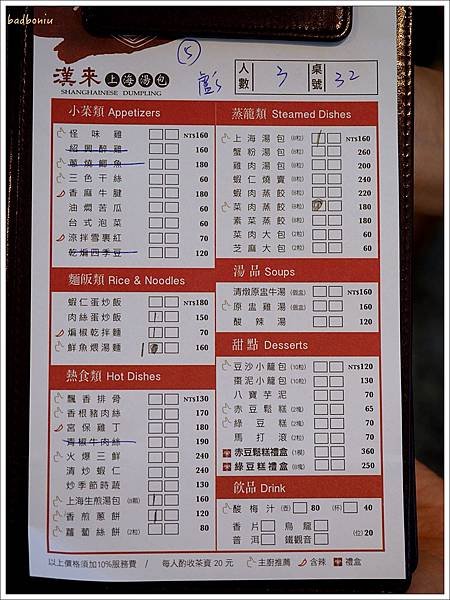 badboniu
5
漢來上海湯包
SHANGHAINESE DUMPLING
人數 3 桌號 32
小菜類 Appetizers
怪味雞 NT$160
紹興醉雞 160
蔥燒鯽魚 180
三色干絲 60
香麻牛腱 180
油燜苦瓜 60
台式泡菜 60
涼拌雪裏紅 70
乾煸四季豆 120
麵飯類 Rice & Noodles
蝦仁蛋炒飯 NT$180
肉絲蛋炒飯 150
煸椒乾拌麵 70
鮮魚煨湯麵 160
熱食類 Hot Dishes
飄香排骨 NT$130
香根豬肉絲 170
宮保雞丁 180
青椒牛肉絲 190
火爆三鮮 240
清炒蝦仁 240
炒季節時蔬 130
上海生煎湯包(8顆) 160
香煎蔥餅 120
蘿蔔絲餅(2粒) 80
蒸籠類 Steamed Dishes
上海湯包(8粒) NT$160
蟹粉湯包(8粒) 260
雞肉湯包(8粒) 200
蝦仁燒賣(8粒) 240
蝦肉蒸餃(8粒) 220
菜肉蒸餃(8粒) 180
素菜蒸餃(8粒) 180
菜肉大包(2粒) 60
芝麻大包(2粒) 60
湯品 Soups
清燉原盅牛湯(個盅) NT$160
原盅雞湯(個盅) 160
酸辣湯 120
甜點 Desserts
豆沙小籠包(10粒) NT$120
棗泥小籠包(10粒) 130
八寶芋泥 70
赤豆鬆糕(2塊) 65
綠豆糕(2塊) 70
馬打滾(2粒) 70
赤豆鬆糕禮盒(1模) 360
綠豆糕禮盒(8塊) 250
飲品 Drink
酸梅汁(壺) 80 (杯) 40
香片 烏龍
普洱 鐵觀音 (位)20
以上價格須加10%服務費 / 每人酌收茶資20元 主廚推薦 / 含辣 禮盒